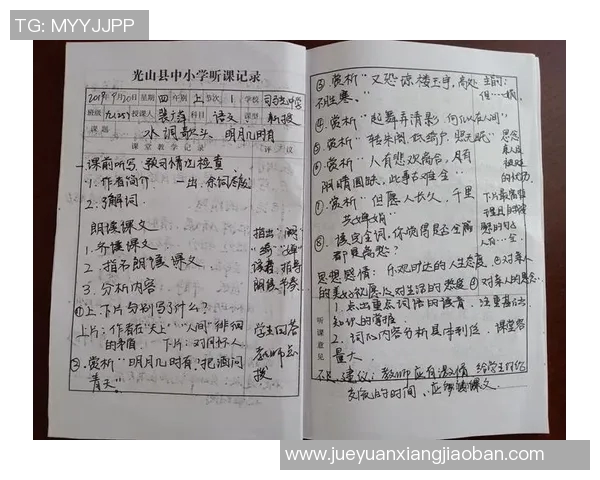 TG: MYYJJPP
光山县中小学听课记录
2019年9月20日 星期四 年级上 节次1 学校
班级 九(25) 授课人 科目 语文 课型 新授
课题 水调歌头·明月几时有
课堂教学记录 评议
课前听写、预习情况检查
1.作者简介
2.了解词
朗读课文
1.齐读课文
2.指名朗读课文
3.分析内容
①上、下片分别写了什么?
上片:作者在"天上""人间"徘徊
的矛盾 下片:对问好人
②.赏析"明月几时有,把酒问
青天"
指出
读音、指导
朗读、节奏
学生回答
教师点
拨
③.赏析"又恐琼楼玉宇,高处
不胜寒。"
④.赏析"起舞弄清影,何似在人间"
⑤.赏析"转朱阁,低绮户,照无眠"
⑥.赏析"人有悲欢离合,月有
阴晴圆缺,此事古难全"
⑦.赏析"但愿人长久,千里
共婵娟"
⑧.读完全词,你觉得是否全篇
都是离愁?
思想感情:乐观旷达的人生态度 ②对亲人
的美好祝愿及对生活的热爱 ④对亲人的思念
听课意见
1.点出重点词语的读音,注重基础
知识的掌握
2.词的内容分析具体到位,课堂容
量大。
建议:教师应有激情 给学生
交流的时间、应背诵课文
www.jueyuanxiangjiaoban.com